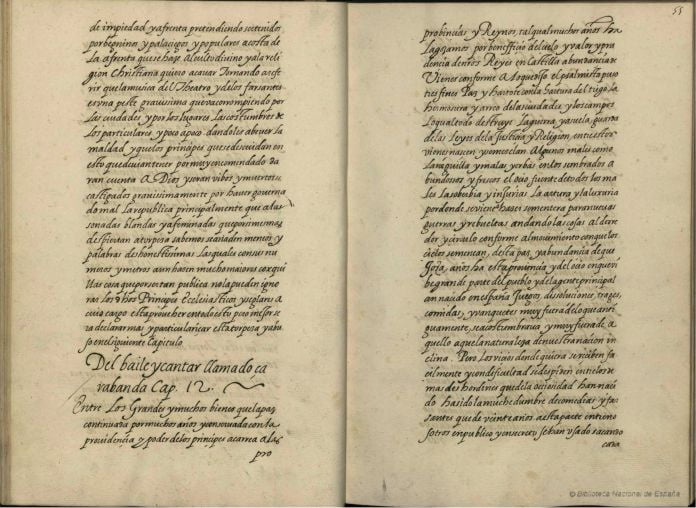 de impiedad y afrenta pretendiendo ser tenidos
por beninos y palacigos y populares acosta de
La afrenta que se haze al culto divino y a la reli
gion christiana quiero acavar Tornando a refe
rir que la musica del Theatro y de los farsantes
es vna peste gravissima que va corronpiendo por
Las ciudades y por los lugares las costumbres de
Los particulares, y poco apoco dandoles abever la
maldad y quelos prinçipes que se descuidan en
esto que devian tener por muy encomendado da
ran cuenta A Dios y seran vibos y muertos
castigados gravissimamente por haver governa
do mal La republica principalmente que a las
sonadas blandas y afeminadas que por si mesmas
despiertan a torpeça sabemos se añaden meneos y
palabras deshonestissimas las quales con su nu
mero y metros aun hazen mucho mayores
cosa que por ser tan publica no la pueden igno
rar los dhos Principes Ecclesiasticos y seglares a
cuio cargo esta proveher en todo esto pero mejor se
ra declarar mas y particulariçar esta torpeza y abu
so en el siguiente Capitulo
Del baile y cantar llamado ça
rabanda Cap. 12.
Entre Los Grandes y muchos bienes que la paz
continuada por muchos años y conservada con la
providencia y poder de los principes acarrea a las
pro
55
probincias y Reynos, tal qual muchos años ha
La goçamos por beneffiçio del cielo y valor y pru
dencia de nros Reyes en Castilla abundançia de
Vienes conforme A lo que dijo el psalmista puso
tus fines Paz y hartote con la hartura del trigo, la
hermosura y arreo de las ciudades y los campos
Lo qual todo destruye La guerra, ya suela, guarda
de las Leyes de la Justicia y Religion, entre estos
vienes nascen y se mezclan Algunos males como
La neguilla y malas yerbas en los sembrados a
bundosos y frescos el ocio fuente de todos los ma
les La soberbia y injurias La artura y la luxuria
por donde se viene hazer sementera para nuevas
guerras y rebueltas andando las cosas al derre
dor y circulo conforme al movimiento con que los
cielos se menean, desta paz, y abundancia de que
Goza, años ha esta provincia y del ocio en que vi
be gran de parte del pueblo y de la gente principal
an naçido en españa Juegos, dissoluciones, trages,
comidas, y vanquetes muy fuera de lo que anti
guamente, se acostumbrava, y muy fuera de a
quello a que la naturaleça de nuestra nacion in
clina. Pero los viçios donde quiera se reciben fa
cilmente y con dificultad se despiden entre los de
mas desordenes que de la ociosidad han nasci
do ha sido la muchedumbre de comedias y far
santes que de veinte años a esta parte entre no
sotros en publico y en secreto se han vsado sacando
cada
© Biblioteca Nacional de España